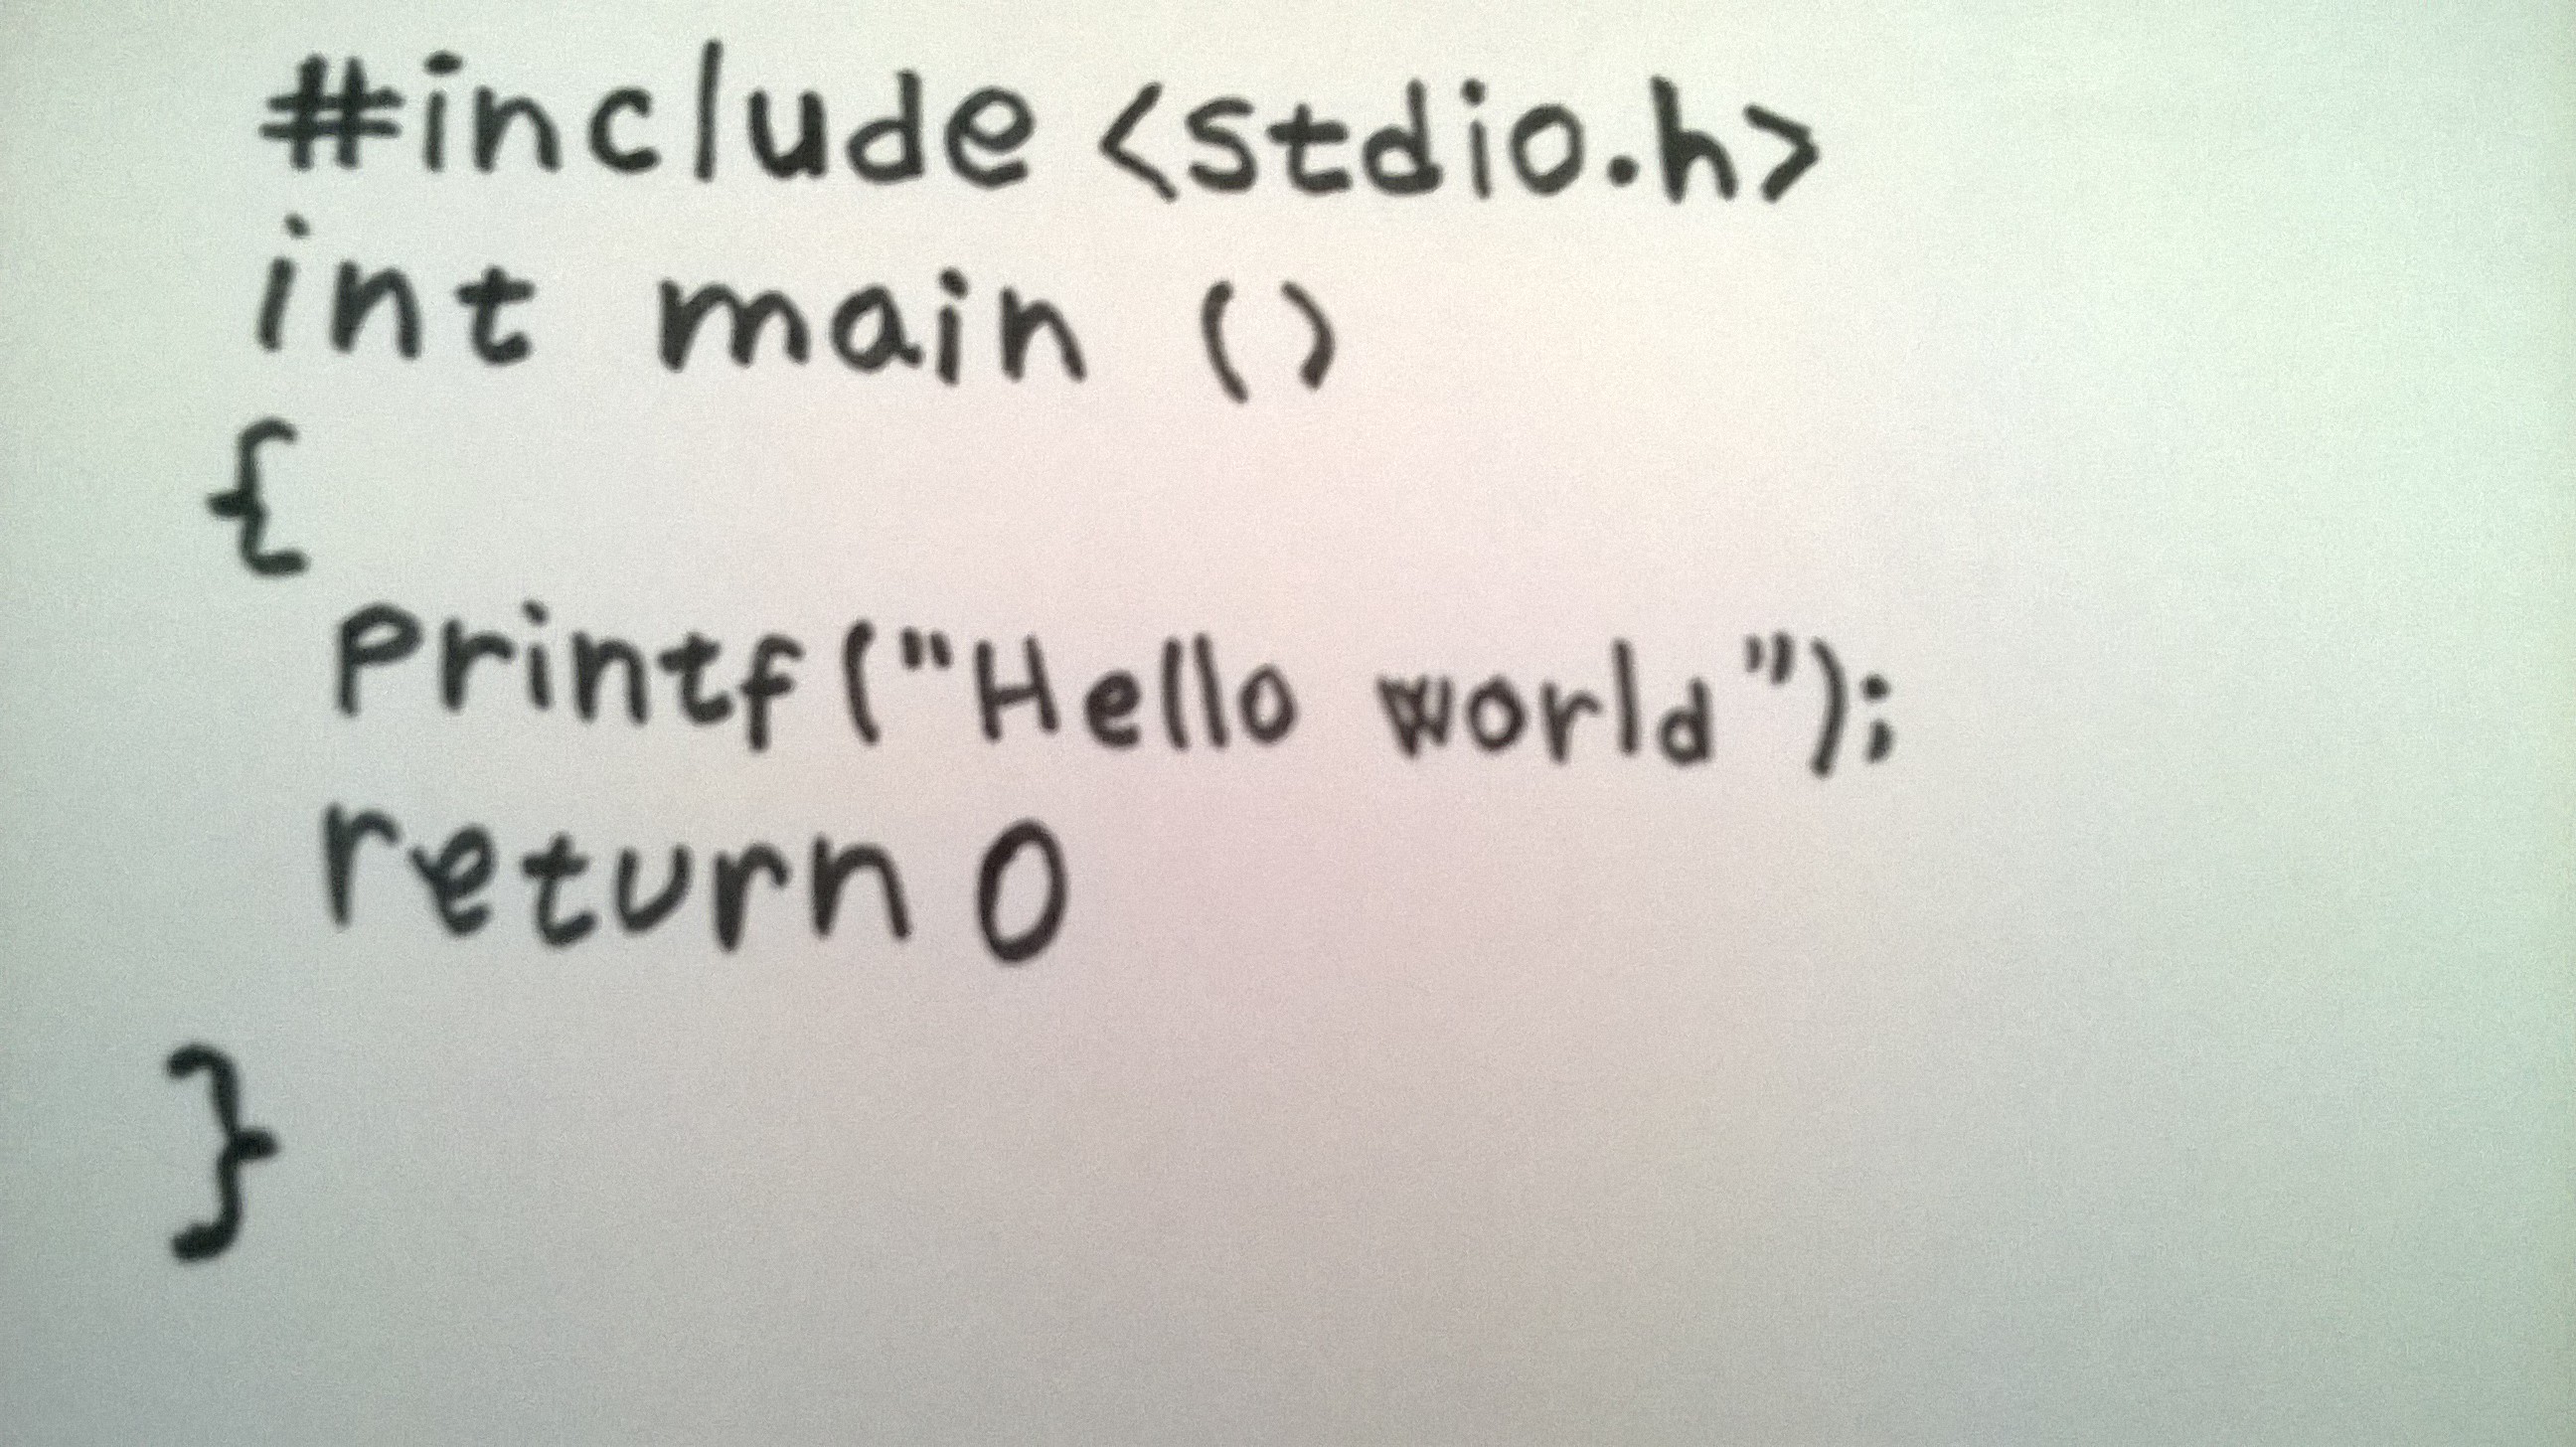 #include <stdio.h>
int main ()
{
printf("Hello world");
return 0
}